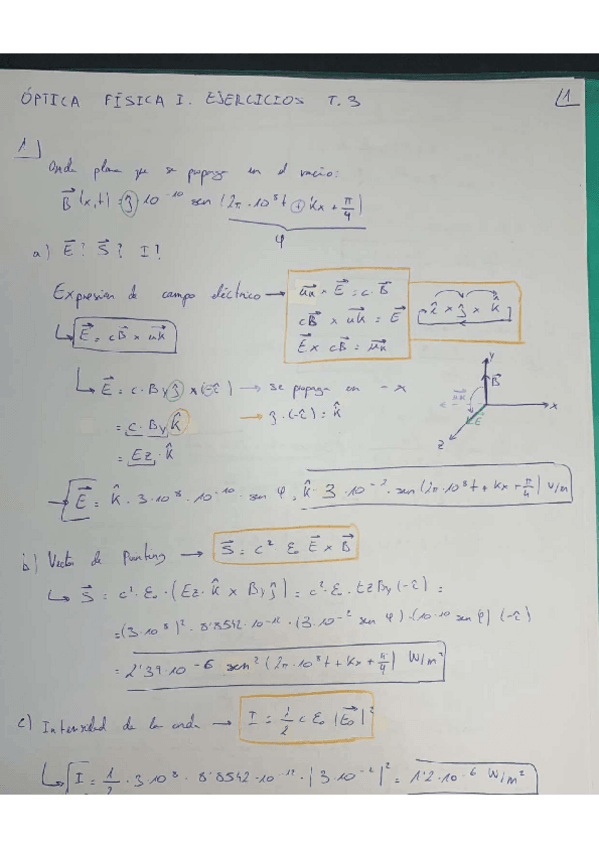 ÓPTICA FÍSICA I. EJERCICIOS T.3
1
1)
Onda plana que se propaga en el vacío:
B⃗(x,t) = ĵ 10⁻¹⁰ sen (2π·10⁸t + kx + π/4)
φ
a) E⃗? S⃗? I?
Expresión de campo eléctrico → u⃗k × E⃗ = c·B⃗
cB⃗ × u⃗k = E⃗
E⃗ × cB⃗ = u⃗k
î × ĵ × k̂
↳ E⃗ = cB⃗ × u⃗k
↳ E⃗ = c·By ĵ × (-î) → se propaga en -x
= c·By k̂ → ĵ·(-î) = k̂
= Ez·k̂
y
B⃗
u⃗k
x
E⃗
z
→ E⃗ = k̂·3·10⁸·10⁻¹⁰·sen φ = k̂·3·10⁻²·sen(2π·10⁸t + kx + π/4) V/m
b) Vector de Poynting → S⃗ = c² ε₀ E⃗ × B⃗
↳ S⃗ = c²·ε₀·(Ez·k̂ × By ĵ) = c²·ε₀·EzBy(-î) =
= (3·10⁸)²·8'8542·10⁻¹²·(3·10⁻² sen φ)·(10⁻¹⁰ sen φ)(-î)
= 2'39·10⁻⁶ sen²(2π·10⁸t + kx + π/4) W/m²
c) Intensidad de la onda → I = 1/2 c ε₀ |E⃗₀|²
↳ I = 1/2·3·10⁸·8'8542·10⁻¹²·|3·10⁻²|² = 1'2·10⁻⁶ W/m²